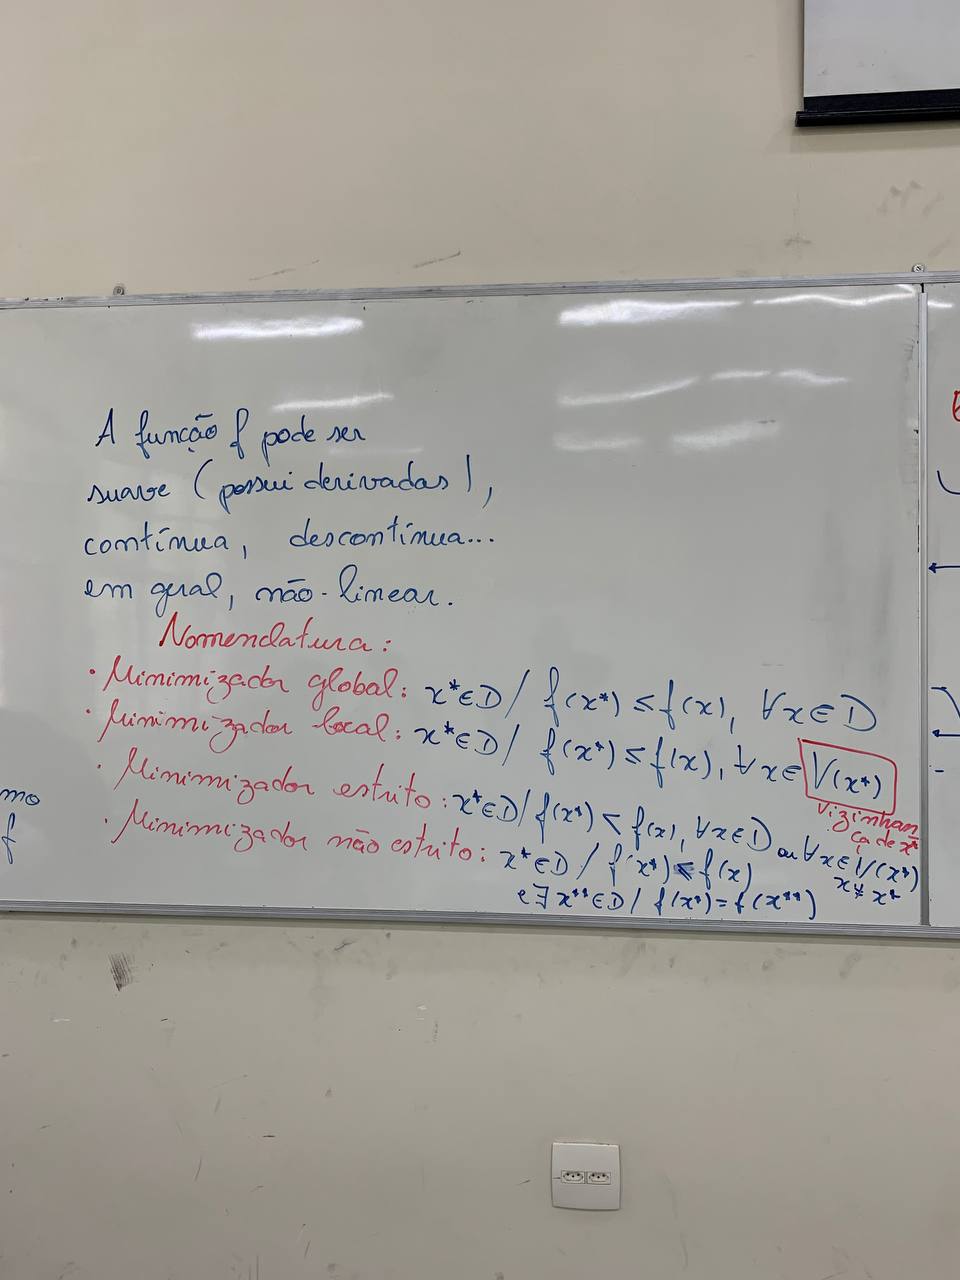 A função f pode ser
suave (possui derivadas),
contínua, descontínua...
em geral, não-linear.
Nomenclatura:
• Minimizador global: x*∈D / f(x*) ≤ f(x), ∀x∈D
• Minimizador local: x*∈D / f(x*) ≤ f(x), ∀x∈ V(x*)
vizinhan
ça de x*
• Minimizador estrito: x*∈D / f(x*) < f(x), ∀x∈D ou ∀x∈V(x*)
x≠x*
• Minimizador não estrito: x*∈D / f(x*) ≤ f(x)
e ∃ x**∈D / f(x*) = f(x**)
mo
f